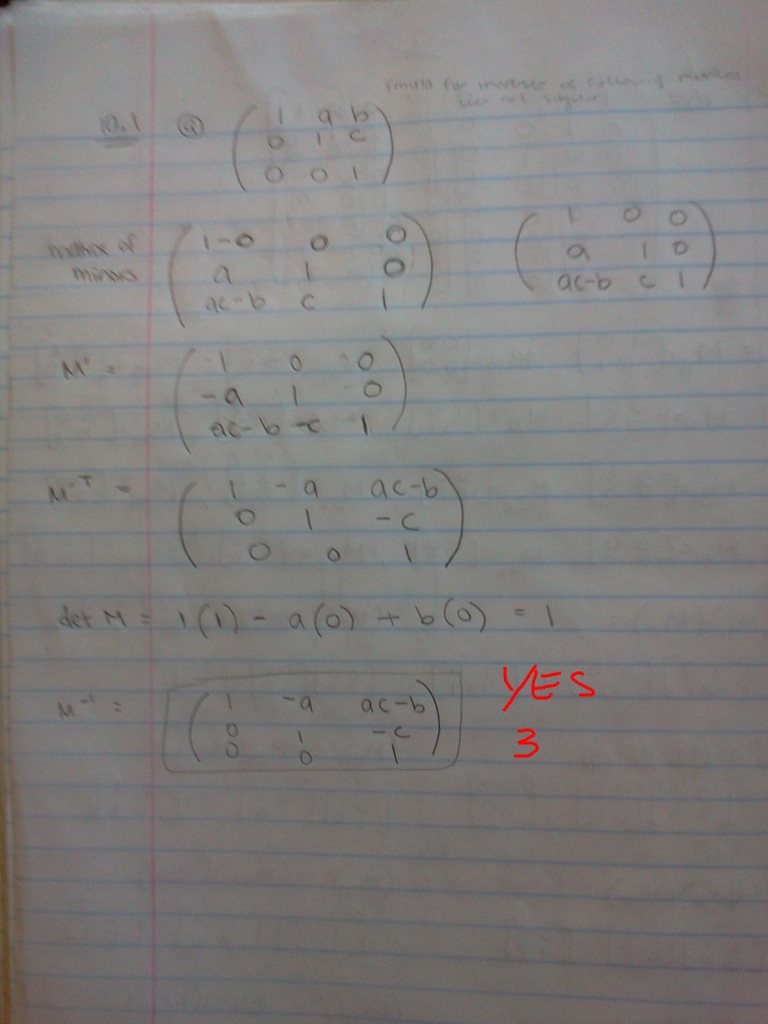 formula for inverses of following matrices
10.1 (a) ( 1 a b
0 1 c
0 0 1 )
matrix of minors ( 1-0 0 0
a 1 0
ac-b c 1 )
( 1 0 0
a 1 0
ac-b c 1 )
M' = ( 1 -0 0
-a 1 -0
ac-b -c 1 )
M'ᵀ = ( 1 -a ac-b
0 1 -c
0 0 1 )
det M = 1(1) - a(0) + b(0) = 1
M⁻¹ = ( 1 -a ac-b
0 1 -c
0 0 1 )
YES
3